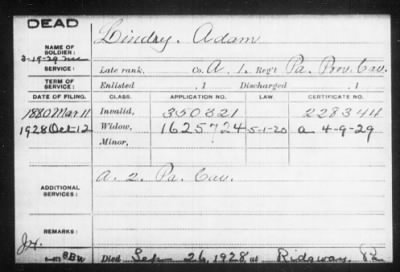 DEAD
NAME OF SOLDIER: Lindsy. Adam
3-19-29
SERVICE: Late rank, Co. A, 1. Reg't Pa. Prov. Cav.
TERM OF SERVICE: Enlisted , 1 Discharged , 1
DATE OF FILING. CLASS. APPLICATION NO. LAW. CERTIFICATE NO.
1880 Mar 11 Invalid, 350321 228344
1928 Oct 12 Widow, 1625724 5-1-20 a 4-9-29
Minor,
ADDITIONAL SERVICES: A. 2. Pa. Cav.
REMARKS:
BBW Died Sep 26, 1928, at Ridgway, Pa